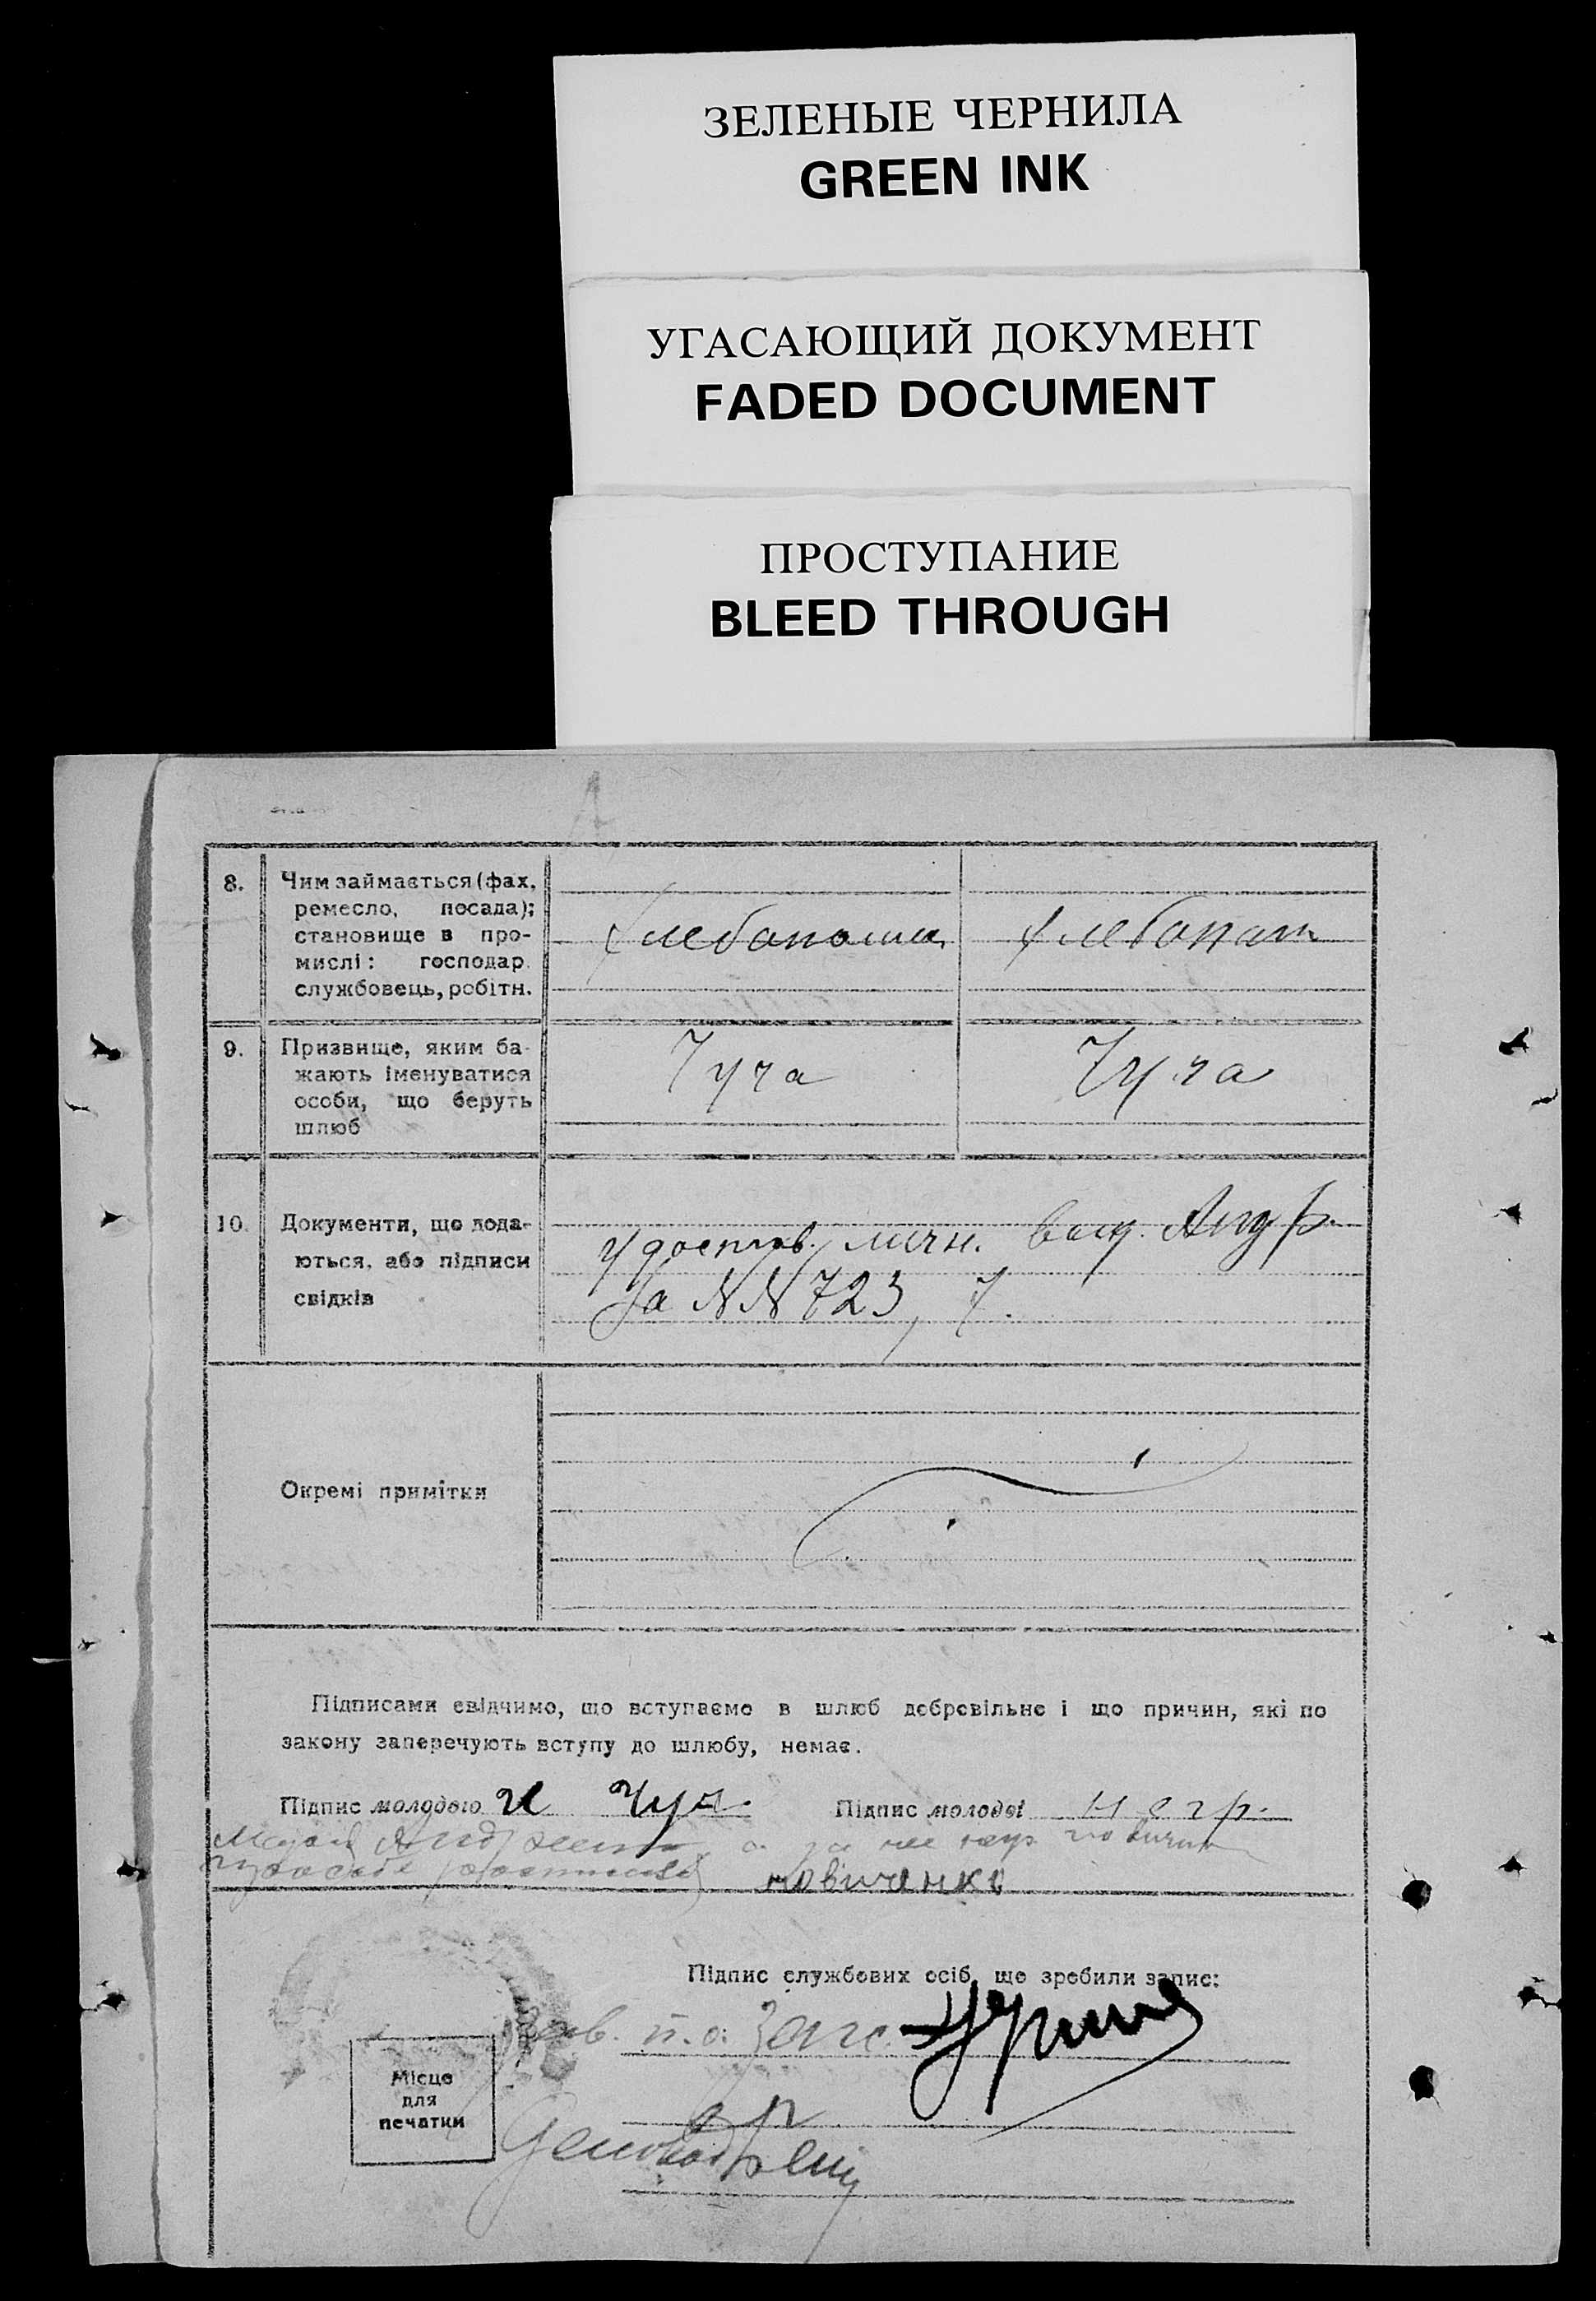 ЗЕЛЕНЫЕ ЧЕРНИЛА
GREEN INK
УГАСАЮЩИЙ ДОКУМЕНТ
FADED DOCUMENT
ПРОСТУПАНИЕ
BLEED THROUGH
8. Чим займається (фах,
ремесло, посада);
становище в про-
мислі: господар.
службовець, робітн.
хлебопашец хлебопаш
9. Призвище, яким ба-
жають іменуватися
особи, що беруть
шлюб
Чуча Чуча
10. Документи, що дода-
ються, або підписи
свідків
Удостов. личн. вол.
За NN 723, 7.
Окремі примітки
Підписами свідчимо, що вступаємо в шлюб добровільно і що причин, які по
закону заперечують вступу до шлюбу, немає.
Підпис молодого И Чуч Підпис молодої негр.
а за нее
новиченко
Підпис службових осіб, що зробили запис:
Зав. п.о. Загс
Місце
для
печатки